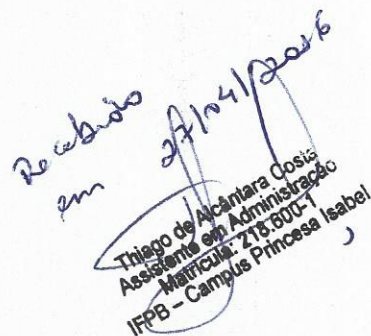 Recebido
em 27/04/2016
Thiago de Alcântara Costa
Assistente em Administração
Matrícula: 218.600-1
IFPB – Campus Princesa Isabel